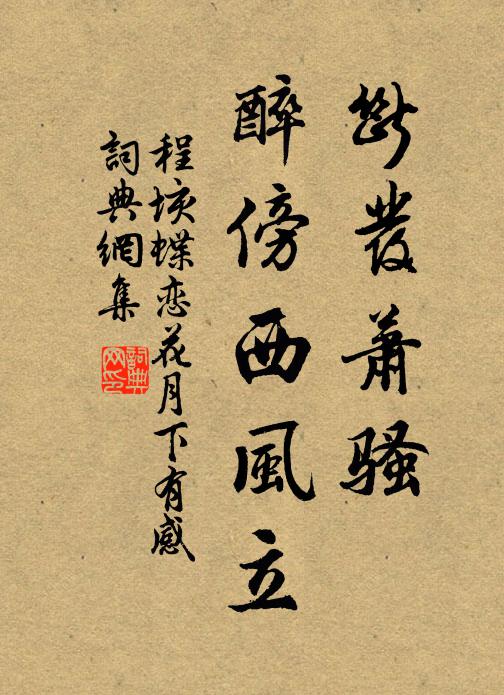 斷發蕭騷
醉傍西風立
程垓蝶恋花月下有感
詞典網集
詞典網印